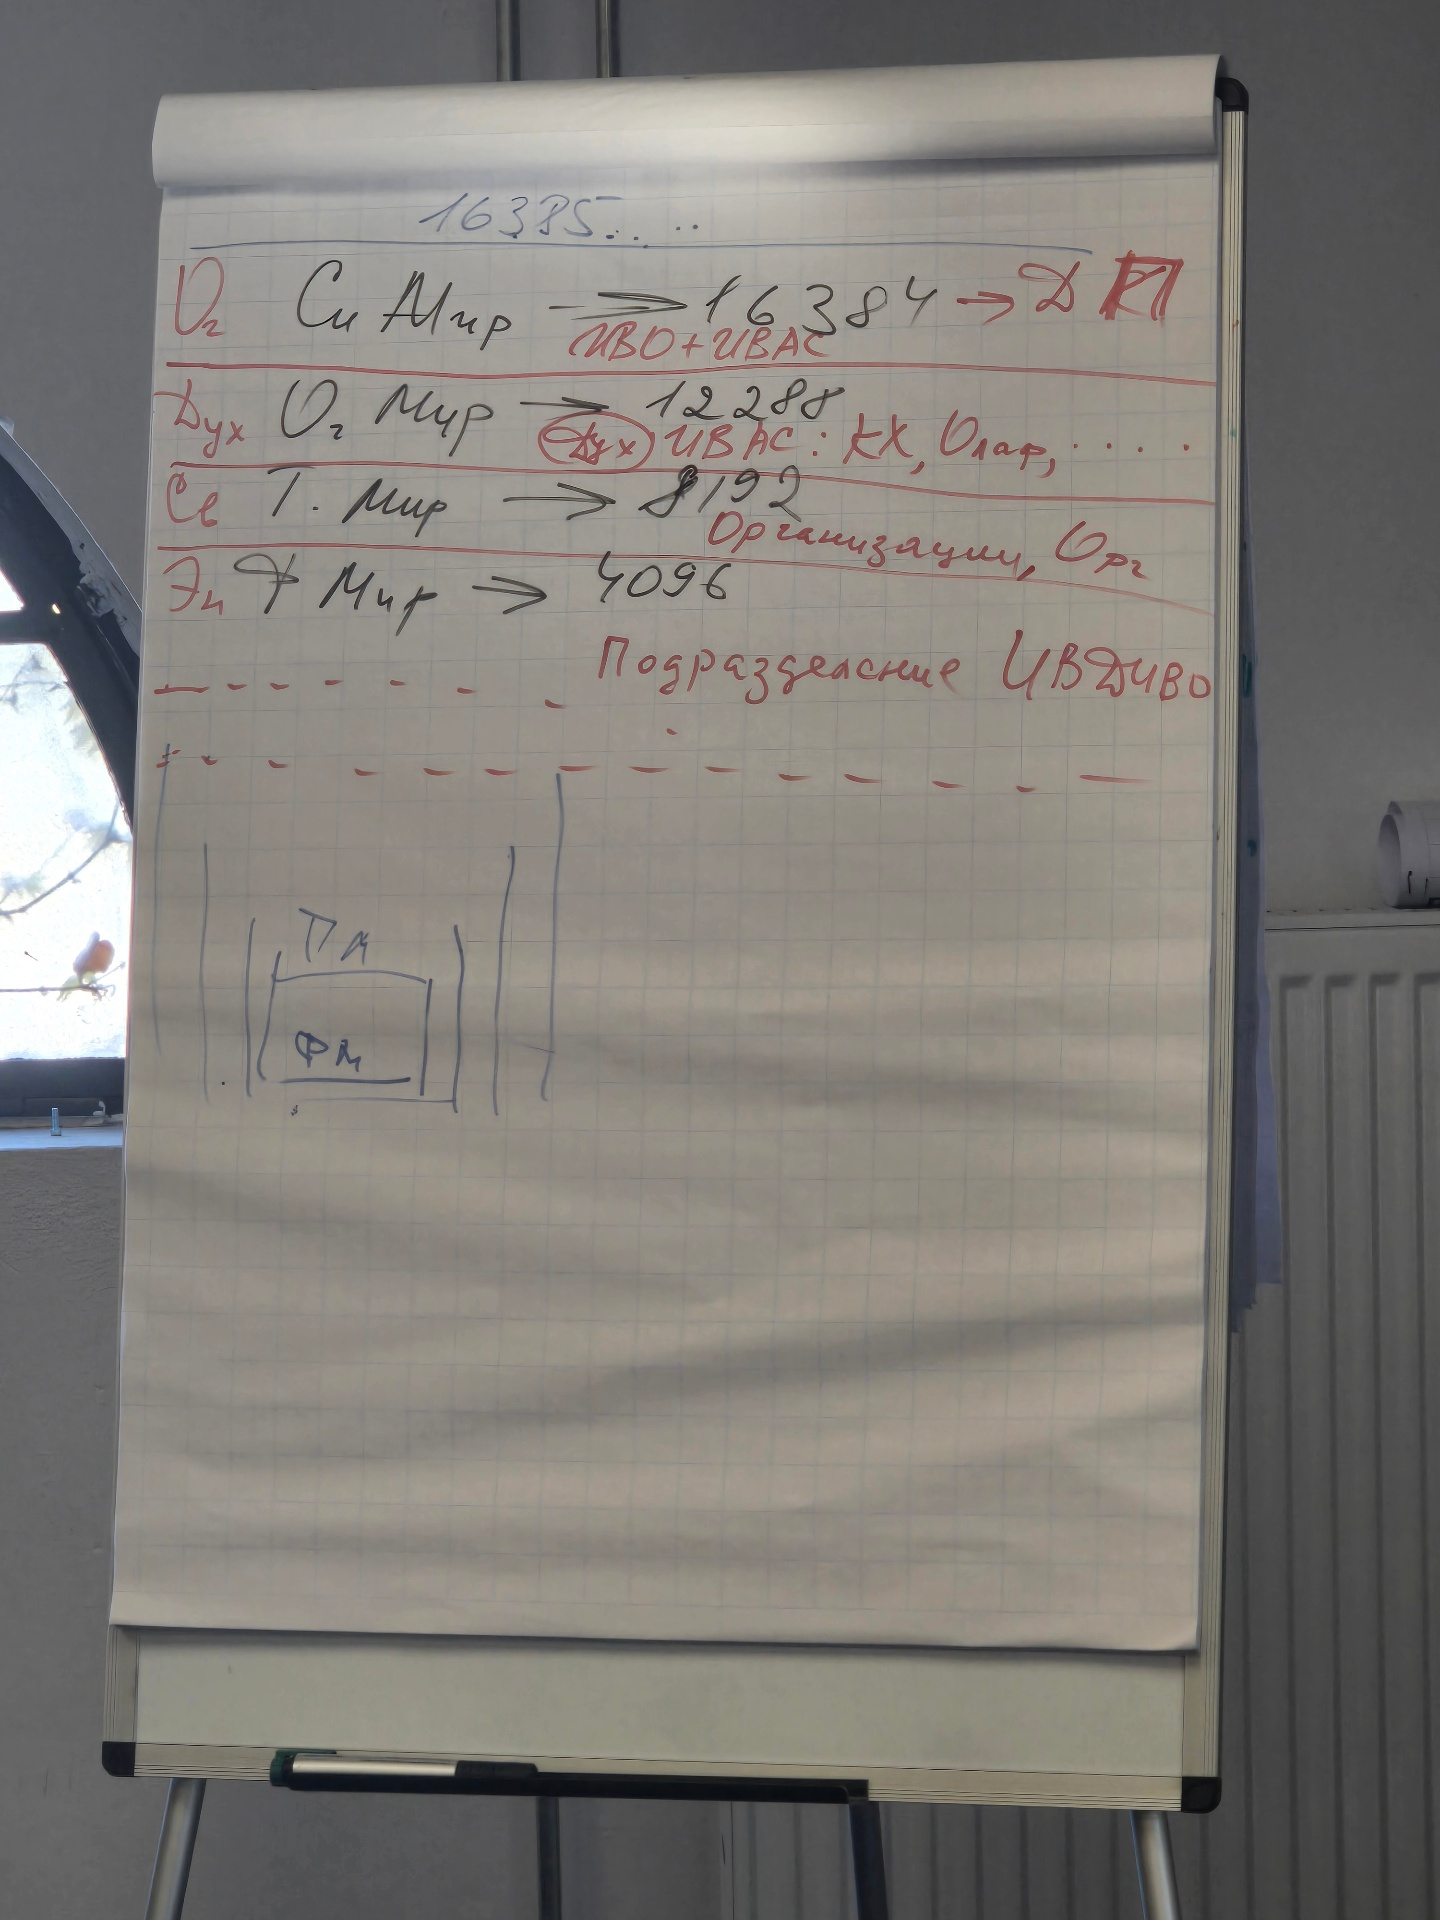 16385.....
Ог Си Мир → 16384 → Д
ИВО+ИВАС
Дух Ог Мир → 12288
Дух ИВАС: КХ, Олаф, .....
Св Т. Мир → 8192
Организации, Орг
Эн Ф Мир → 4096
Подразделение ИВДИВО
Фм